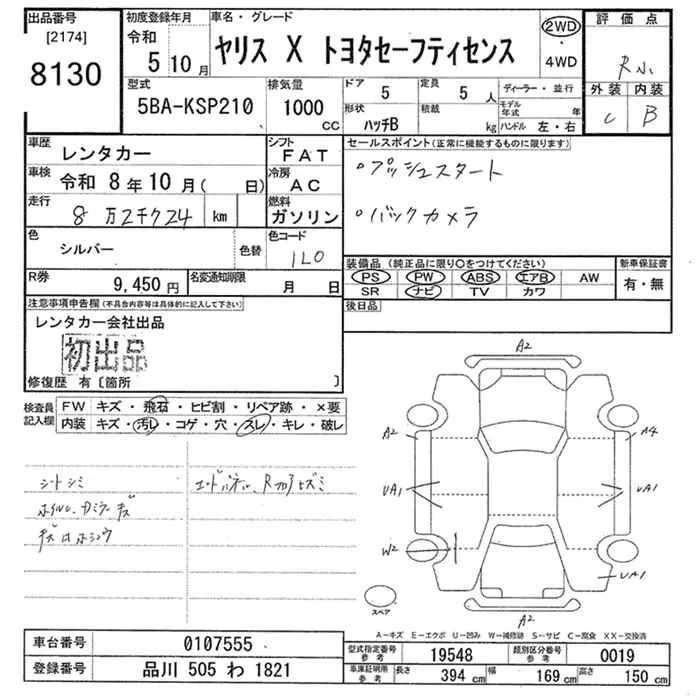 出品番号
[2174]
8130
初度登録年月
令和
5 10月
車名・グレード
ヤリス X トヨタセーフティセンス
2WD
・
4WD
評価点
R小
外装 内装
C B
型式
5BA-KSP210
排気量
1000
CC
ドア
5
定員
5人
ディーラー・並行
形状
ハッチB
積載
kg
モデル年式 年
ハンドル 左・右
車歴
レンタカー
シフト
FAT
車検
令和 8年10月( 日)
冷房
AC
走行
8万2千ク24 km
燃料
ガソリン
色
シルバー
色替
色コード
1L0
R券
9,450円
名変通知期限
月 日
セールスポイント(正常に機能するものに限ります)
◦プッシュスタート
◦バックカメラ
装備品(純正品に限り○をつけてください)
PS PW ABS エアB AW
SR ナビ TV カワ
新車保証書
有・無
後日品
注意事項申告欄(不具合内容等は具体的に記入して下さい)
レンタカー会社出品
初出品
修復歴 有〔箇所 〕
検査員
記入欄
FW キズ・飛石・ヒビ割・リペア跡・×要
内装 キズ・汚レ・コゲ・穴・スレ・キレ・破レ
シートシミ
ホイル、カミラーキズ
キズ凹ホシュウ
A2
A2
A4
UA1
UA1
W2
UA1
A2
スペア
A−キズ E−エクボ U−凹み W−補修跡 S−サビ C−腐食 XX−交換済
車台番号
0107555
登録番号
品川 505 わ 1821
型式指定番号
参考
19548
類別区分番号
参考
0019
車庫証明所
参考
長さ
394 cm
幅
169 cm
高さ
150 cm